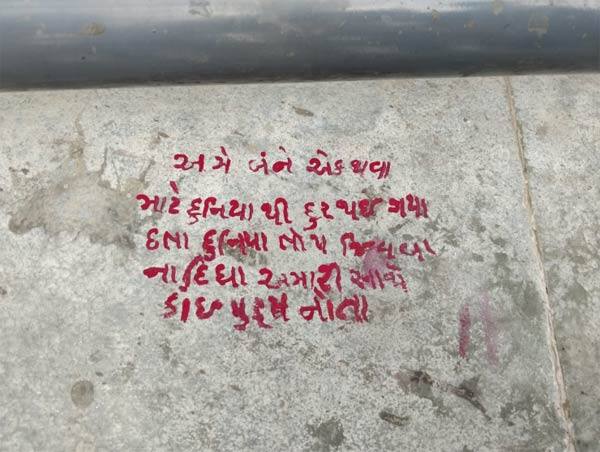 અમે બંને એક થવા
માટે દુનિયા થી દુર થઇ ગયા
હતા દુનિયા તોય જિવવા
ના દિધા અમારી સાથે
કોઇ પુરૂષ નોતા